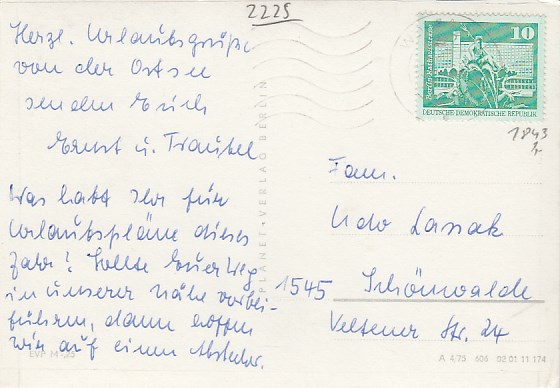 2225
Herzl. Urlaubsgrüße
von der Ostsee
senden Euch
Ernst u. Traudel
Was habt Ihr für
Urlaubspläne dieses
Jahr? Sollte Euer Weg
in unserer Nähe vorbei-
führen, dann hoffen
wir auf einen Abstecher.
EVP M -,25
PLANET-VERLAG BERLIN
10
Berlin-Rathausstrasse
DEUTSCHE DEMOKRATISCHE REPUBLIK
1843
Fam.
Udo Lassak
1545 Schönwalde
Veltener Str. 24
A 4/75 606 02 01 11 174